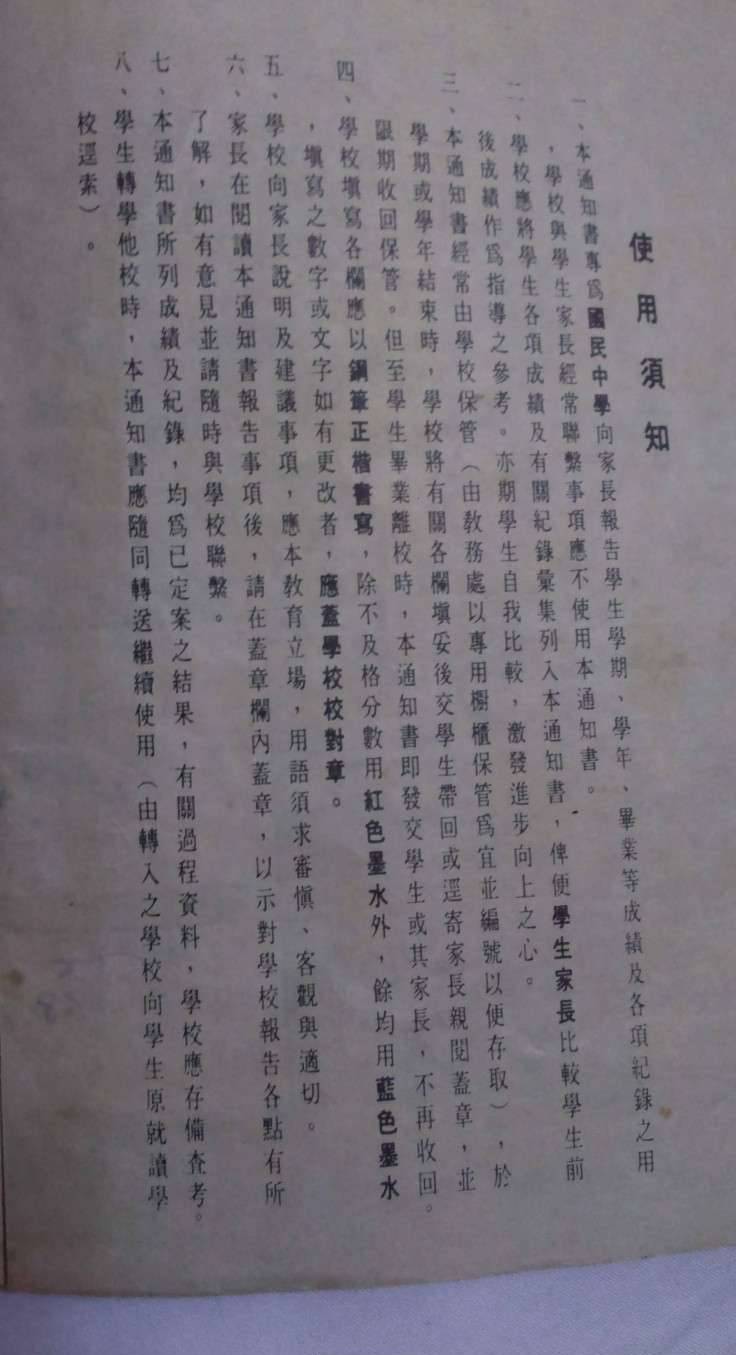 使用須知
一、本通知書專為國民中學向家長報告學生學期、學年、畢業等成績及各項紀錄之用
，學校與學生家長經常聯繫事項應不使用本通知書。
二、學校應將學生各項成績及有關紀錄彙集列入本通知書，俾便學生家長比較學生前
後成績作為指導之參考。亦期學生自我比較，激發進步向上之心。
三、本通知書經常由學校保管（由教務處以專用櫥櫃保管為宜並編號以便存取），於
學期或學年結束時，學校將有關各欄填妥後交學生帶回或逕寄家長親閱蓋章，並
限期收回保管。但至學生畢業離校時，本通知書即發交學生或其家長，不再收回。
四、學校填寫各欄應以鋼筆正楷書寫，除不及格分數用紅色墨水外，餘均用藍色墨水
，填寫之數字或文字如有更改者，應蓋學校校對章。
五、學校向家長說明及建議事項，應本教育立場，用語須求審慎、客觀與適切。
六、家長在閱讀本通知書報告事項後，請在蓋章欄內蓋章，以示對學校報告各點有所
了解，如有意見並請隨時與學校聯繫。
七、本通知書所列成績及紀錄，均為已定案之結果，有關過程資料，學校應存備查考。
八、學生轉學他校時，本通知書應隨同轉送繼續使用（由轉入之學校向學生原就讀學
校逕索）。